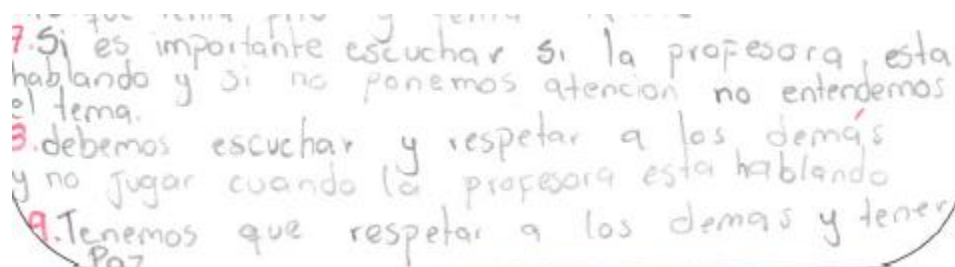 7. Si es importante escuchar si la profesora esta
hablando y si no ponemos atencion no entendemos
el tema.
8. debemos escuchar y respetar a los demás
y no jugar cuando la profesora esta hablando
9. Tenemos que respetar a los demas y tener
Paz